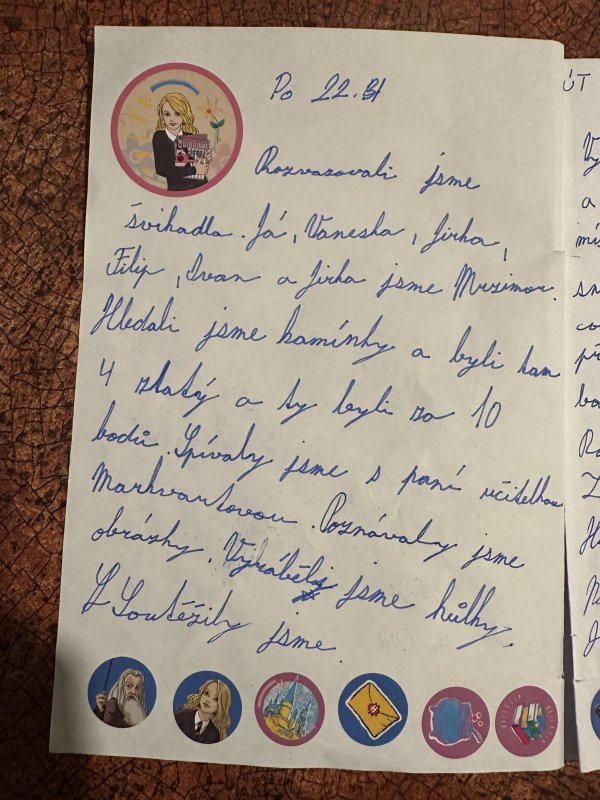 Po 22.
ÚT
Rozvazovali jsme
švihadla. Já, Vaneska, Jirka,
Filip, Ivan a Jirka jsme Mrzimor.
Hledali jsme kamínky a byli tam
4 zlatý a ty byli za 10
bodů. Spívaly jsme s paní učitelkou
Markvartovou. Poznávaly jsme
obrázky. Vyráběli jsme hůlky.
Soutěžily jsme